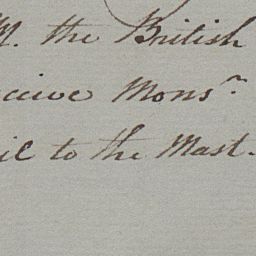 M. the British
ceive Mons.r
il to the Mast.